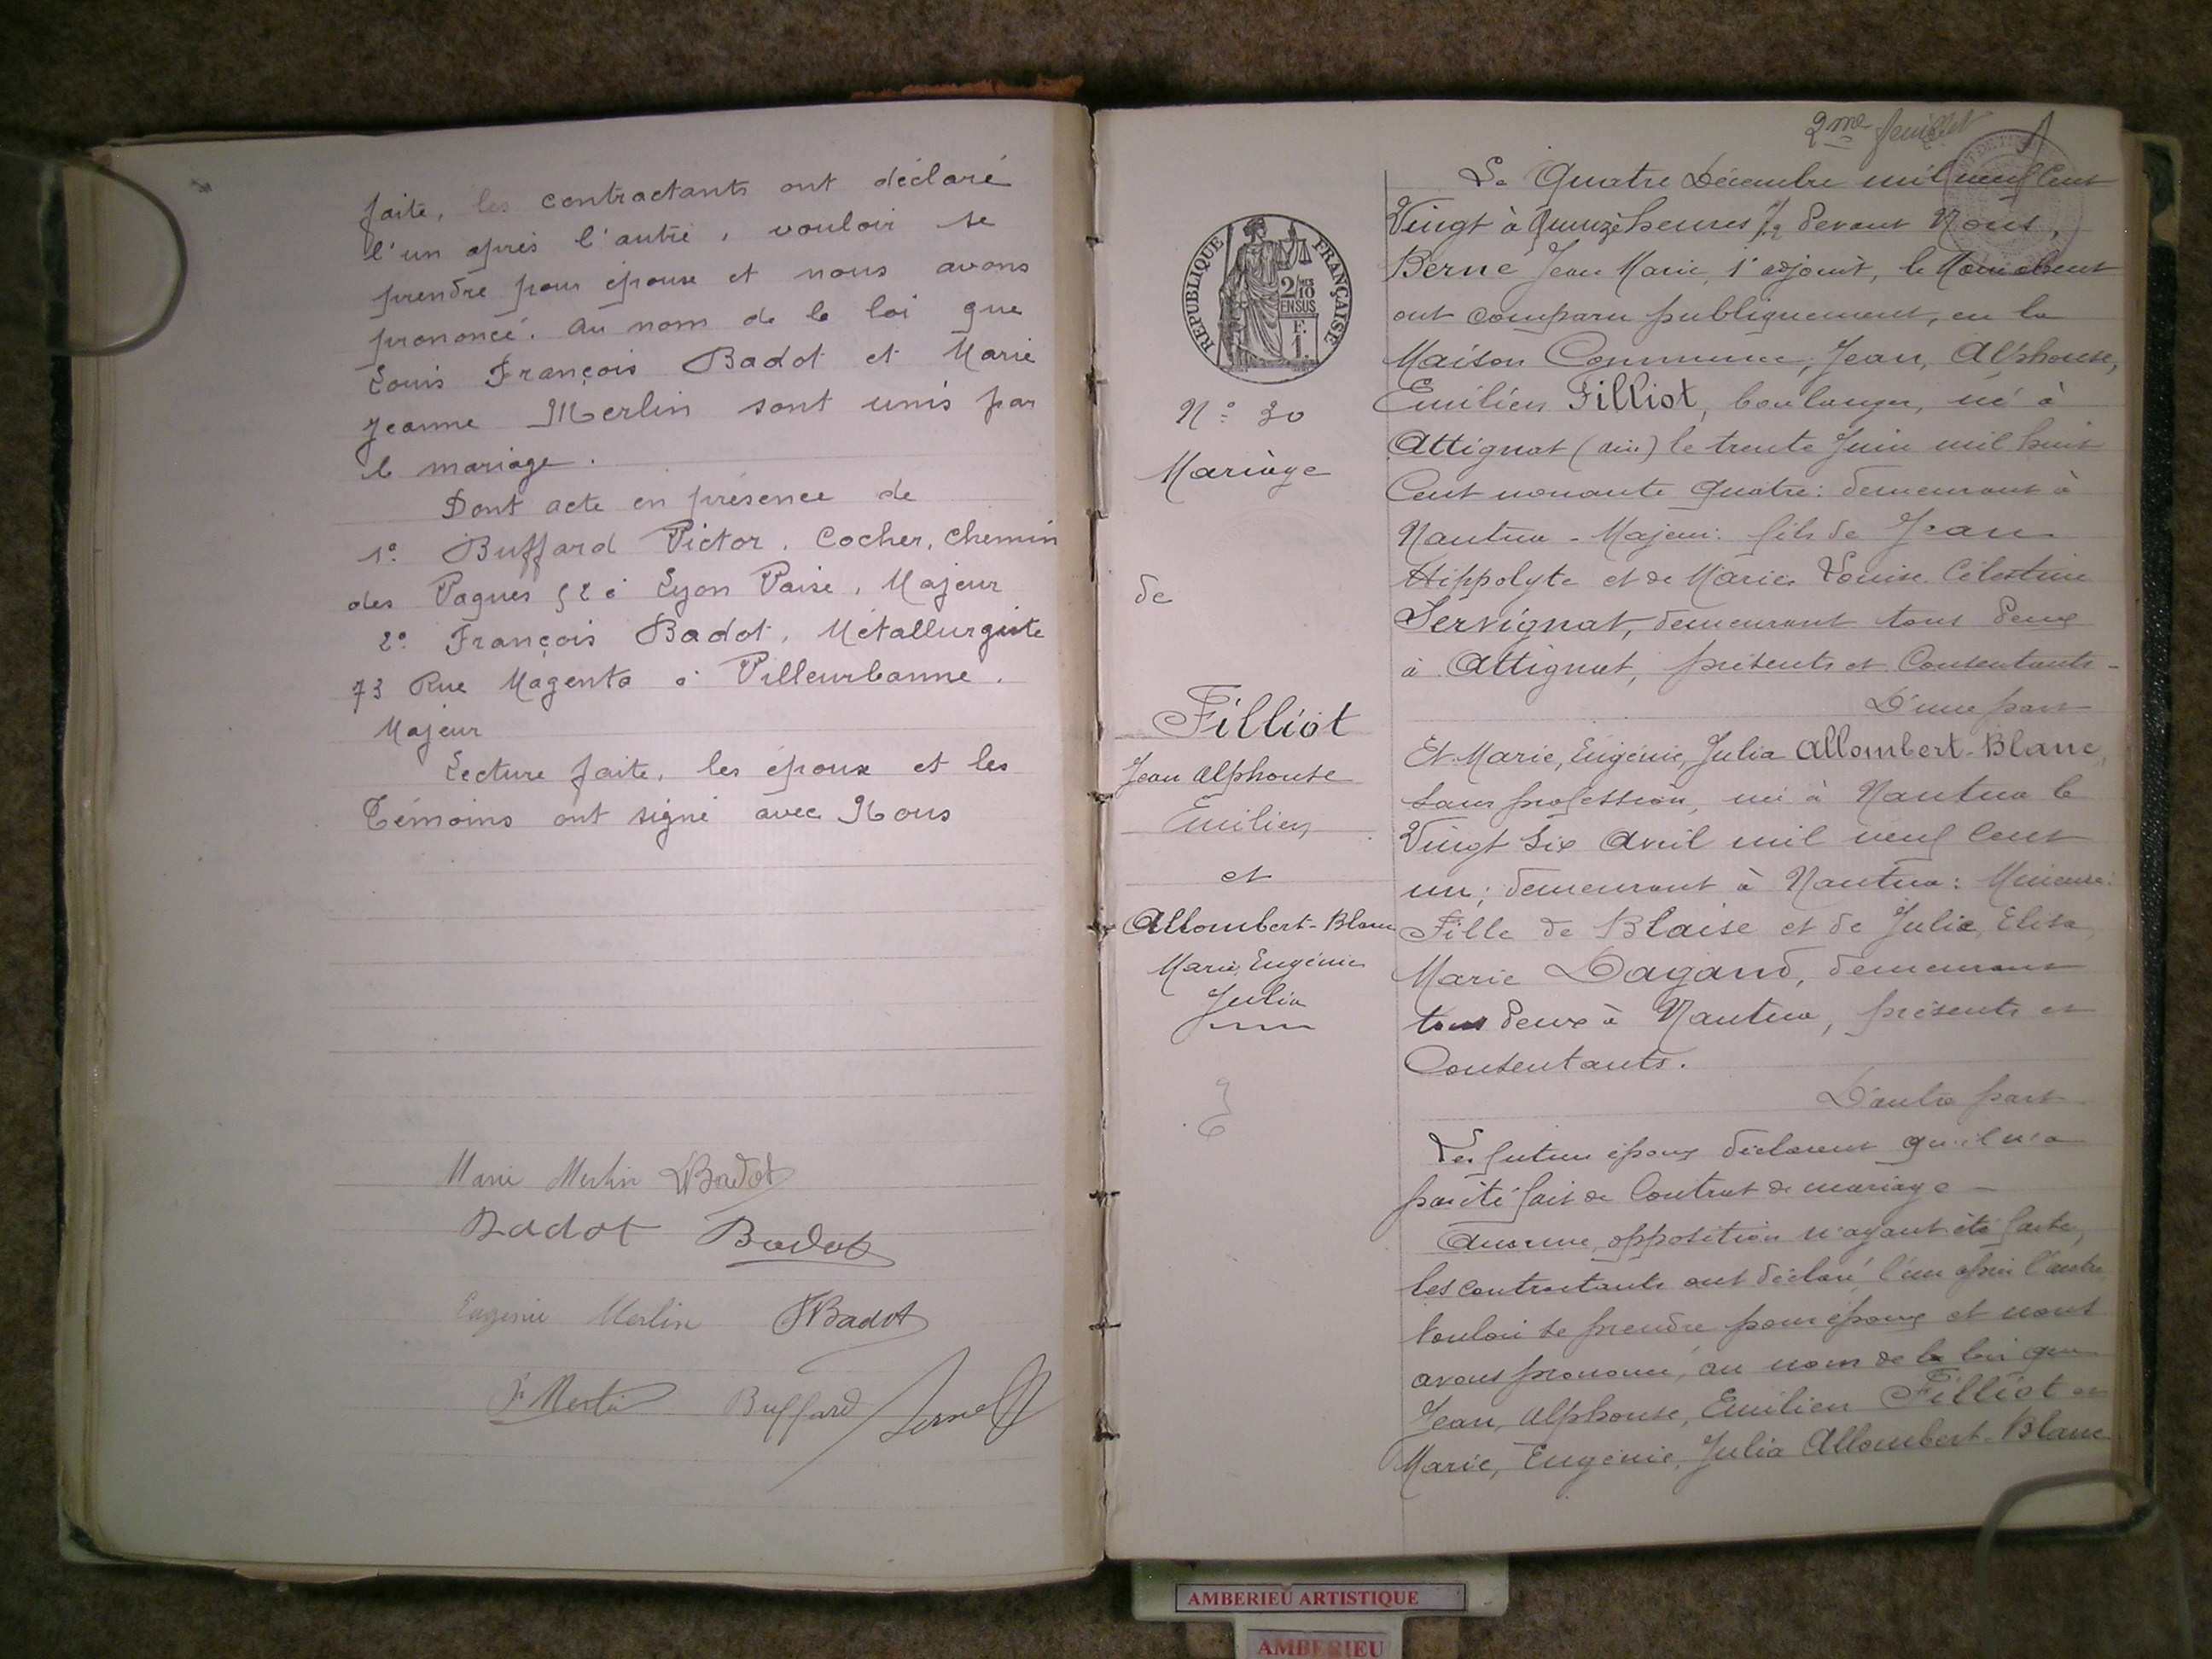 faite, les contractants ont déclaré
l'un après l'autre, vouloir se
prendre pour épouse et nous avons
prononcé, au nom de la loi que
Louis François Badot et Marie
Jeanne Merlin sont unis par
le mariage.
Dont acte en présence de
1º Buffard Victor, Cocher, chemin
des Vaques 52 à Lyon Vaise, Majeur
2º François Badot, Métallurgiste
73 Rue Magenta à Villeurbanne,
Majeur
Lecture faite, les époux et les
Témoins ont signé avec Nous
Marie Merlin LBadot
Badot Badot
Eugenie Merlin FBadot
Buffard
2me feuillet
RÉPUBLIQUE FRANÇAISE
2/10
EN SUS
F.
1.
Nº 30
Mariage
de
Filliot
Jean Alphonse
Emilien
et
Allombert-Blanc
Marie, Eugénie
Julia
Le Quatre Décembre mil neuf Cent
Vingt à Quinze heures 1/2 devant Nous,
Berne Jean Marie, 1er adjoint, le Maire absent
ont comparu publiquement, en la
Maison Commune, Jean, Alphonse,
Emilien Filliot, boulanger, né à
Attignat (Ain) le trente Juin mil huit
Cent nonante Quatre: demeurant à
Nantua - Majeur: fils de Jean
Hippolyte et de Marie, Louise Célestine
Servignat, demeurant tous deux
à Attignat, présents et Consentants -
D'une part
Et Marie, Eugénie, Julia Allombert-Blanc,
sans profession, née à Nantua le
Vingt Six Avril mil neuf Cent
un; demeurant à Nantua: Mineure:
Fille de Blaise et de Julie, Elisa,
Marie Dagand, demeurant
tous deux à Nantua, présents et
Consentants.
D'autre part
Les futurs époux déclarent qu'il n'a
pas été fait de Contrat de mariage -
Aucune opposition n'ayant été faite,
les contractants ont déclaré, l'un après l'autre
vouloir se prendre pour époux et nous
avons prononcé, au nom de la loi que
Jean, Alphonse, Emilien Filliot et
Marie, Eugénie, Julia Allombert-Blanc
AMBERIEU ARTISTIQUE
AMBERIEU